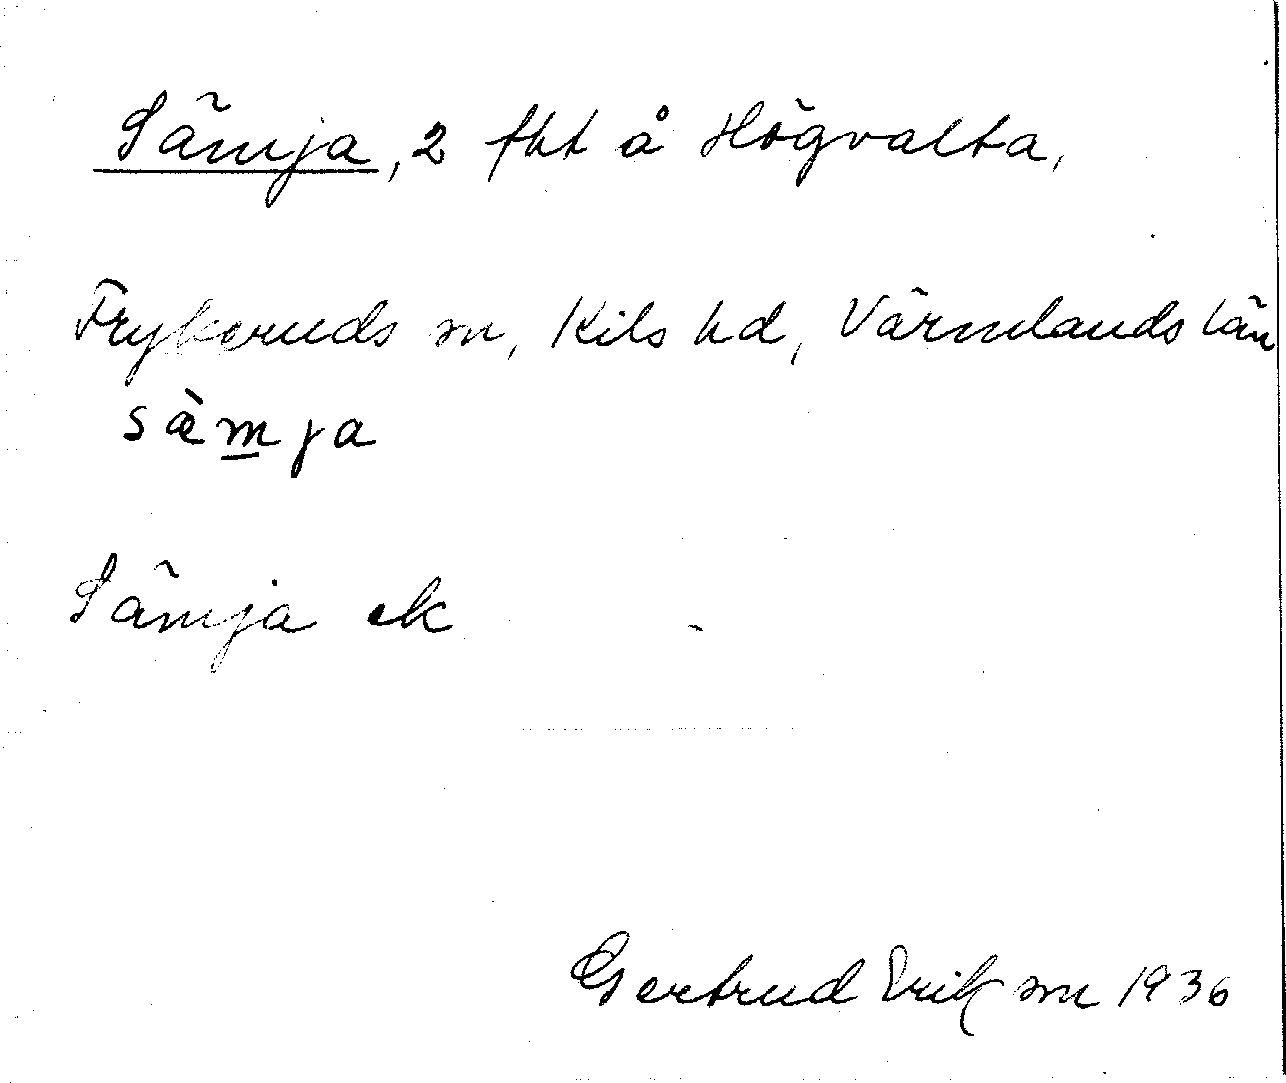 Sämja, 2 fht å Högvalta,
Frykeruds sn, Kils hd, Värmlands län
sæ̀m̲ja
Sämja ek
Gertrud Erikson 1936